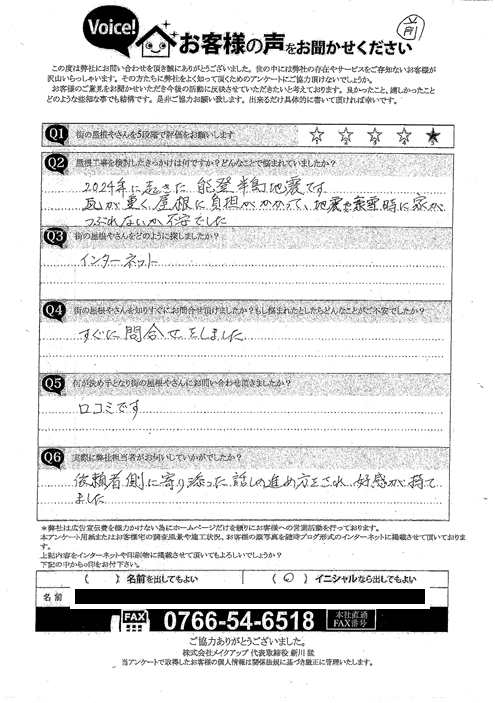 Voice!
お客様の声をお聞かせください
前
この度は弊社にお問い合わせを頂き誠にありがとうございました。世の中には弊社の存在やサービスをご存知ないお客様が
沢山いらっしゃいます。その方たちに弊社をよく知って頂くためのアンケートにご協力頂けないでしょうか。
お客様のご意見をお聞かせいただき今後の活動に反映させていただきたいと考えております。良かったこと、嬉しかったこと
どのような些細な事でも結構です。是非ご協力お願い致します。出来るだけ具体的に書いて頂ければ幸いです。
Q1 街の屋根やさんを5段階で評価をお願いします
Q2 屋根工事を検討したきっかけは何ですか？どんなことで悩まれていましたか？
2024年に起きた 能登半島地震です
瓦が重く、屋根に負担がかかって、地震や豪雪時に家が
つぶれないか不安でした
Q3 街の屋根やさんをどのように探しましたか？
インターネット
Q4 街の屋根やさんを知りすぐにお問合せ頂けましたか？もし悩まれたとしたらどんなことがご不安でしたか？
すぐに問合せをしました
Q5 何が決め手となり街の屋根やさんにお問い合わせ頂きましたか？
口コミです
Q6 実際に弊社担当者がお伺いしていかがでしたか？
依頼者側に寄り添った話しの進め方をされ、好感が持て
ました
＊弊社は広告宣伝費を極力かけない為にホームページだけを頼りにお客様への営業活動を行っております。
本アンケート用紙またはお客様宅の調査風景や施工状況、お客様の顔写真を随時ブログ形式のインターネットに掲載させて頂いております。
上記内容をインターネットや印刷物に掲載させて頂いてもよろしいでしょうか？
下記の中から○印をお付下さい。
（ ）名前を出してもよい （○）イニシャルなら出してもよい
名前
FAX 0766-54-6518 本社直通
FAX番号
ご協力ありがとうございました。
株式会社メイクアップ 代表取締役 新川 猛
当アンケートで取得したお客様の個人情報は関係法規に基づき厳正に管理いたします。